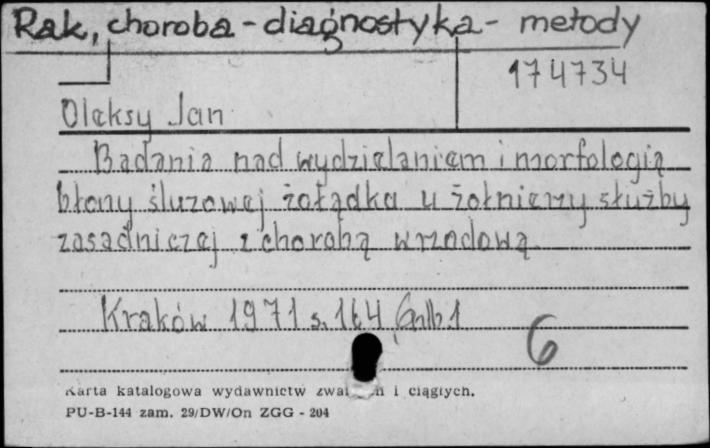 Rak, choroba - diagnostyka - metody
174734
Oleksy Jan
Badania nad wydzielaniem i morfologią
błony śluzowej żołądka u żołnierzy służby
zasadniczej z chorobą wrzodową
Kraków 1971 s. 164 nlb. 1
6
Karta katalogowa wydawnictw i ciągłych.
PU-B-144 zam. 29/DW/On ZGG - 204